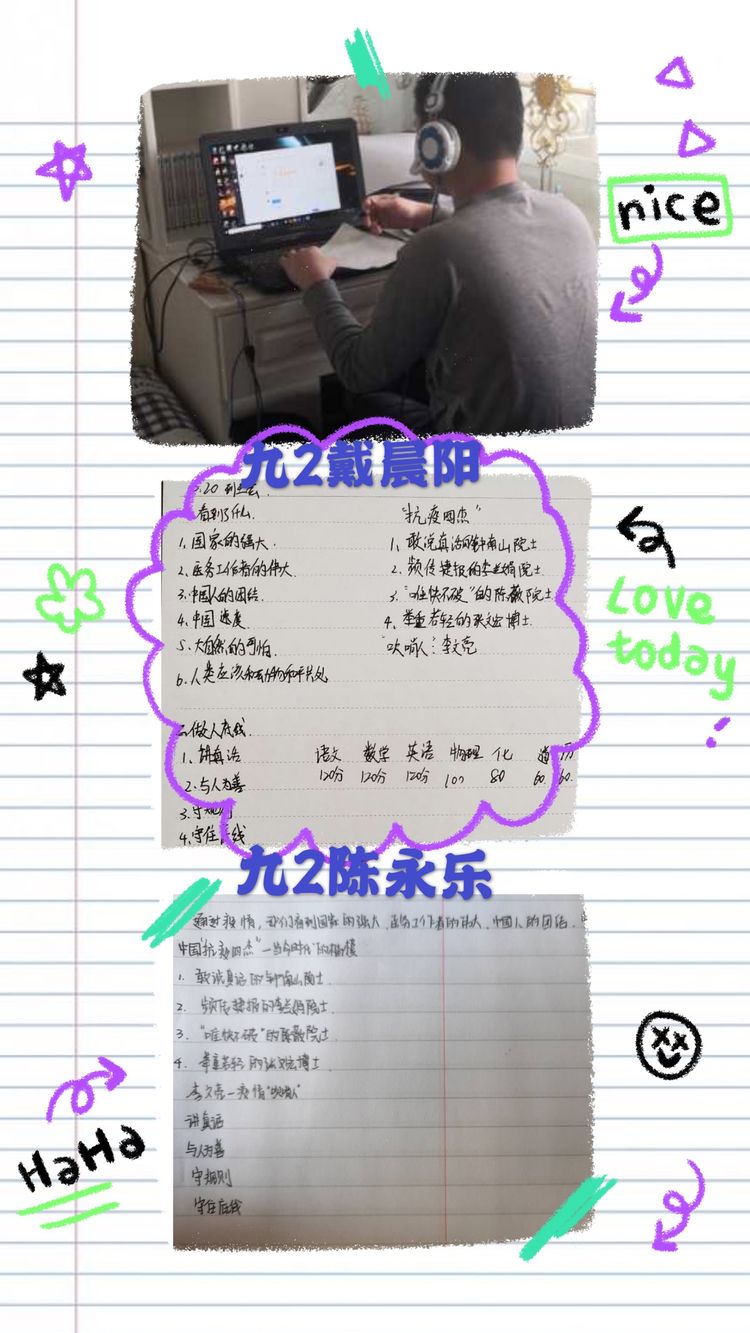 nice
九2戴晨阳
看到了什么
"抗疫四杰"
1.国家的强大.
1、敢说真话的钟南山院士
2.医务工作者的伟大.
2.频传捷报的李兰娟院士.
3.中国人的团结
3."唯快不破"的陈薇院士
4.中国速度
4.举重若轻的张文宏博士.
5.大自然的可怕
"吹哨人":李文亮
6.人类应该和动物和平共处
二.做人底线
1、讲真话
语文 数学 英语 物理 化 道 历
2.与人为善
120分 120分 120分 100 80 60 60
3.守规则
4.守住底线
Love
today
九2陈永乐
通过疫情,我们看到国家的强大、医务工作者的伟大、中国人的团结.
中国"抗疫四杰"—当今时代的楷模
1. 敢说真话的钟南山院士.
2. 频传捷报的李兰娟院士.
3. "唯快不破"的陈薇院士
4. 举重若轻的张文宏博士
李文亮—疫情"吹哨人"
讲真话
与人为善
守规则
守住底线
HaHa